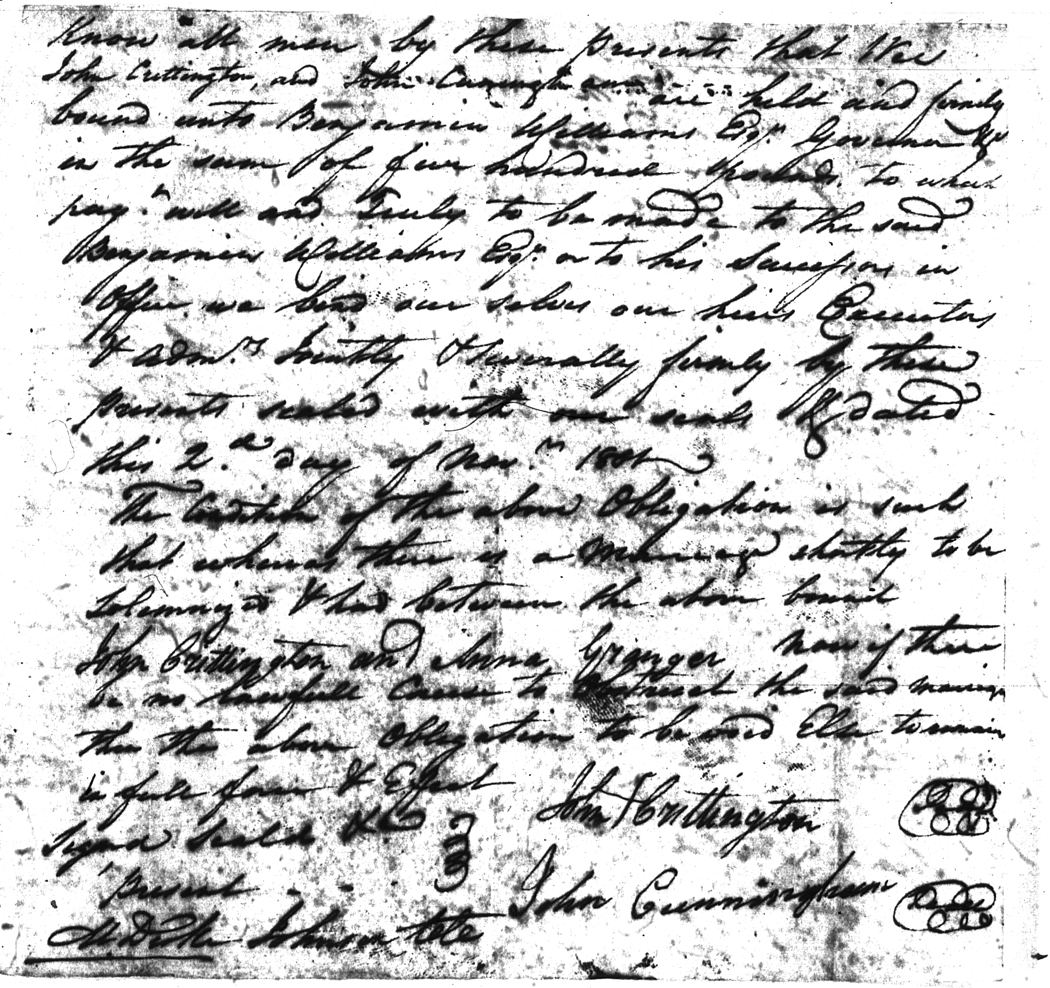 Know all men by these presents that Wee
John Crittington, and John Cunningham are held and firmly
bound unto Benjamin Williams Esqr. Governor &c
in the sum of five hundred pounds, to which
paymt. well and Truly to be made to the said
Benjamin Williams Esqr. or to his Successors in
Office we bind our selves our heirs Executors
& Admrs Jointly & Severally firmly by these
presents sealed with our seals & dated
this 2.d day of Novr. 1801
The Condition of the above Obligation is such
that whereas there is a Marriage shortly to be
Solemnyzed & had between the above bound
John Crittington and Anna Granger Now if there
be no lawfull Cause to Obstruct the said marriage
then the above Obligation to be void Else to remain
in full force & Effect
Signd Seald &c
John Crittington
Present
John Cunningham
Johnson